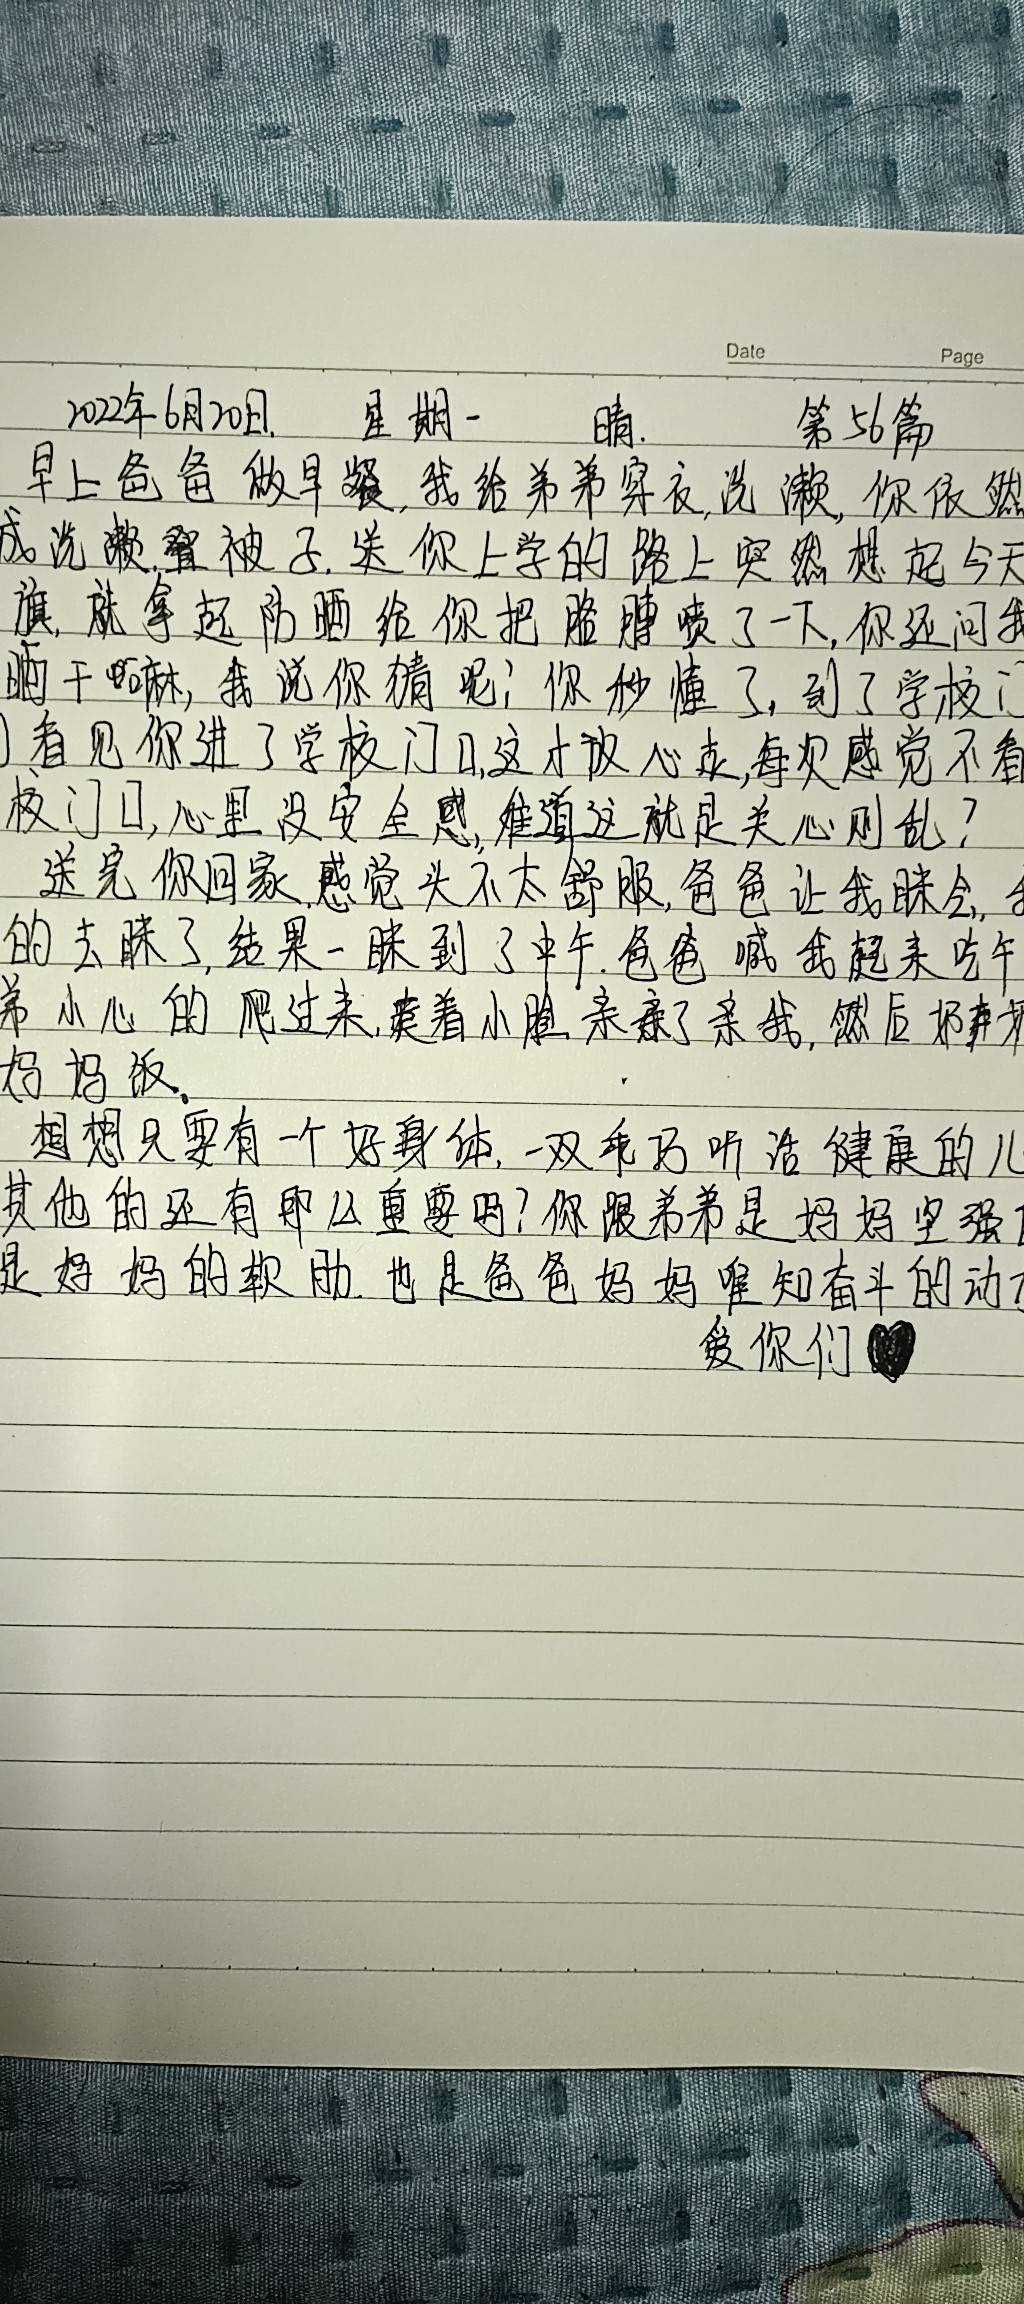 Date
Page
2022年6月20日. 星期一 晴. 第56篇
早上爸爸做早餐,我给弟弟穿衣,洗漱,你依然
成洗漱,叠被子.送你上学的路上突然想起今天
旗,就拿起防晒给你把胳膊喷了一下,你还问我
晒干嘛,我说你猜呢?你秒懂了,到了学校门
看见你进了学校门口,这才放心走,每次感觉不看
校门口,心里没安全感,难道这就是关心则乱?
送完你回家,感觉头不太舒服,爸爸让我眯会,我
的去眯了,结果一眯到了中午.爸爸喊我起来吃午
弟小心的爬过来,凑着小脸亲亲了亲我,然后
妈妈饭。
想想只要有一个好身体,一双乖巧听话健康的儿
其他的还有那么重要吗?你跟弟弟是妈妈坚强
是妈妈的软肋.也是爸爸妈妈唯知奋斗的动力
爱你们